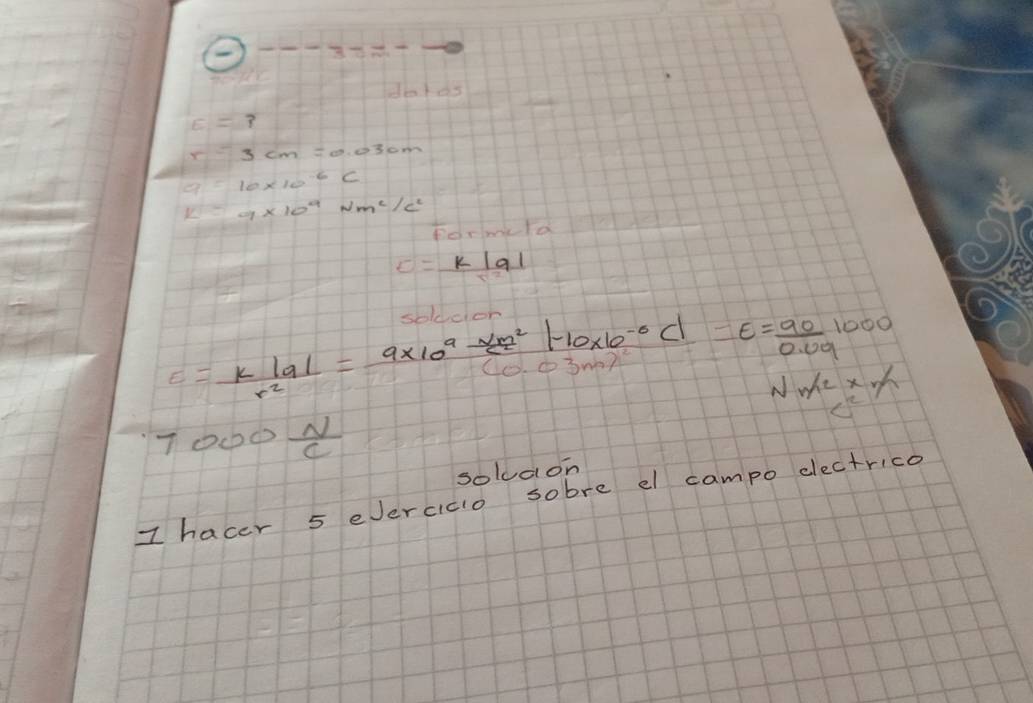 -
3 cm
datos
E = ?
r = 3 cm = 0.03cm
q = 10x10⁻⁶ C
K = 9x10⁹ Nm²/c²
Formula
E = K |q|
r²
solucion
E = K |q| / r² = 9x10⁹ Nm²/C² |-10x10⁻⁶ C| / (0.03m)² = E = 90 1000 / 0.09
N m² x m
C²
7000 N/C
solución
1 hacer 5 eJercicio sobre el campo electrico